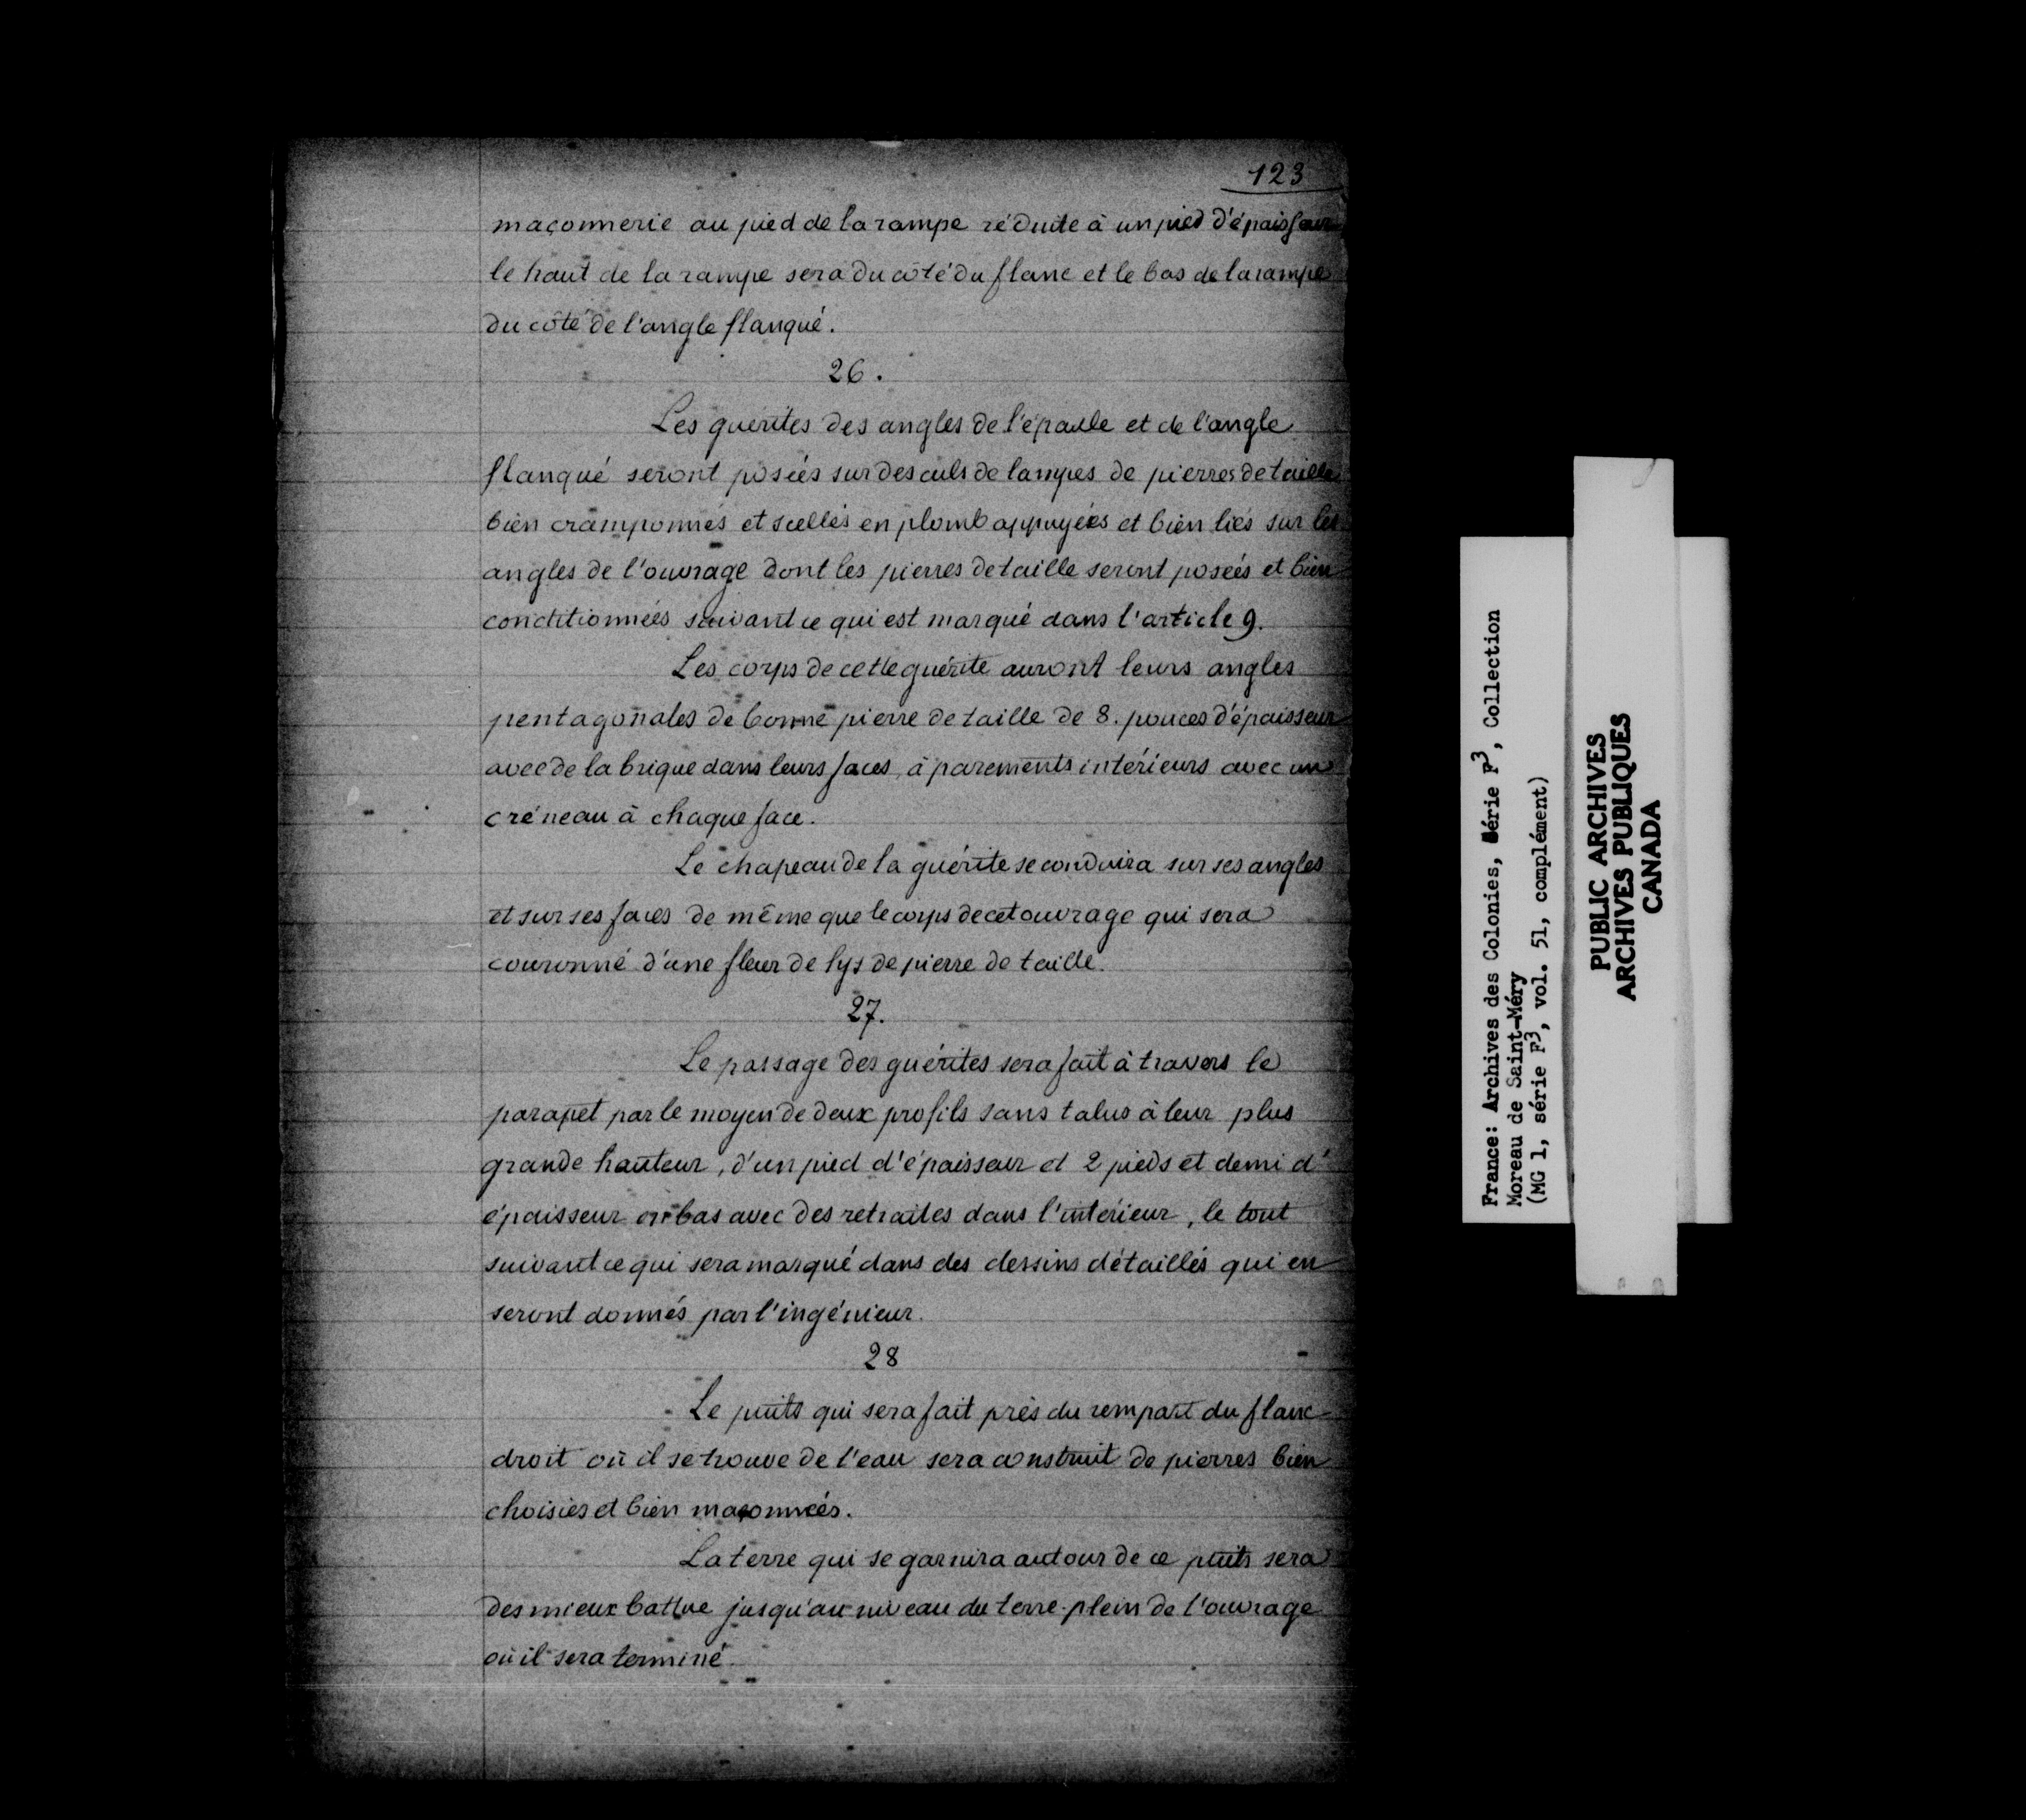 123
maçonnerie au pied de la rampe réduite à un pied d'épaisseur
le haut de la rampe sera du côté du flanc et le bas de la rampe
du côté de l'angle flanqué.
26.
Les guerites des angles de l'épaule et de l'angle
flanqué seront posées sur des culs de lampes de pierres de taille
bien cramponnés et scellés en plomb appuyées et bien liés sur les
angles de l'ouvrage dont les pierres de taille seront posées et bien
conditionnées suivant ce qui est marqué dans l'article 9.
Les corps de cette guérite auront leurs angles
pentagonales de bonne pierre de taille de 8. pouces d'épaisseur
avec de la brique dans leurs faces, à parements intérieurs avec un
créneau à chaque face.
Le chapeau de la guérite se conduira sur ses angles
et sur ses faces de même que le corps de cet ouvrage qui sera
couronné d'une fleur de lys de pierre de taille.
27.
Le passage des guérites sera fait à travers le
parapet par le moyen de deux profils sans talus à leur plus
grande hauteur, d'un pied d'épaisseur et 2 pieds et demi d'
épaisseur en bas avec des retraites dans l'intérieur, le tout
suivant ce qui sera marqué dans des dessins détaillés qui en
seront donnés par l'ingénieur.
28
Le puits qui sera fait près du rempart du flanc
droit où il se trouve de l'eau sera construit de pierres bien
choisies et bien maçonnées.
La terre qui se garnira autour de ce puits sera
des mieux battue jusqu'au niveau du terre-plein de l'ouvrage
où il sera terminé.
France: Archives des Colonies, Série F3, Collection
Moreau de Saint-Méry
(MG 1, série F3, vol. 51, complément)
PUBLIC ARCHIVES
ARCHIVES PUBLIQUES
CANADA